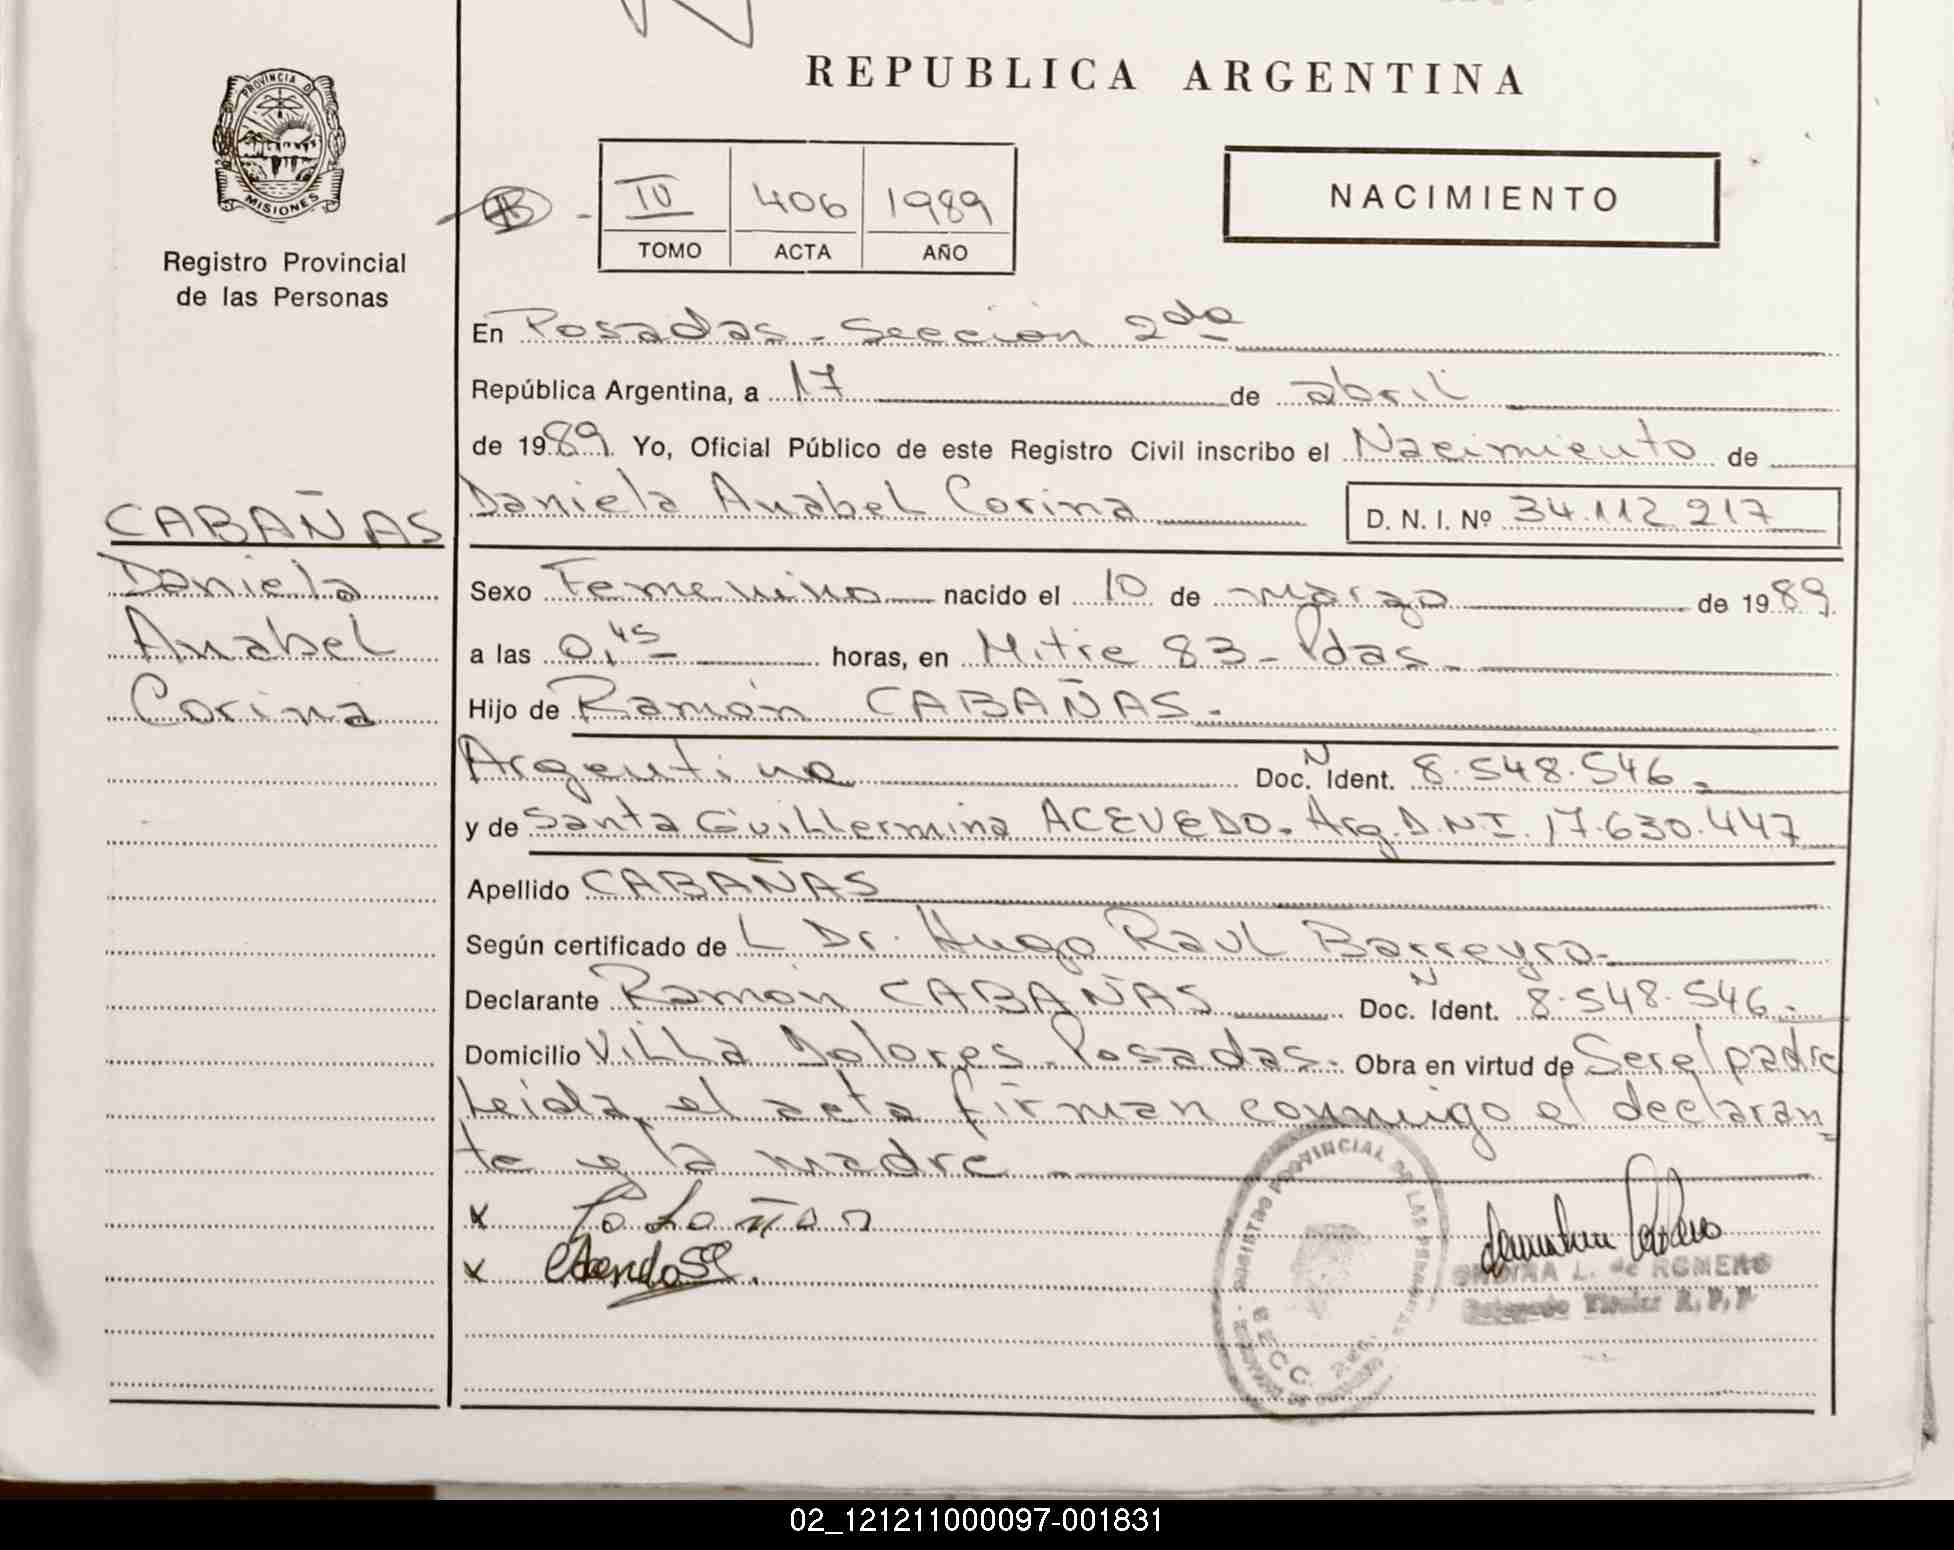 REPUBLICA ARGENTINA
PROVINCIA DE
MISIONES
Registro Provincial
de las Personas
IV 406 1989
TOMO ACTA AÑO
NACIMIENTO
En Posadas - Sección 2da
República Argentina, a 17 de abril
de 1989. Yo, Oficial Público de este Registro Civil inscribo el Nacimiento de
Daniela Anabel Corina D. N. I. Nº 34.112 217
CABAÑAS
Daniela
Anabel
Corina
Sexo Femenino nacido el 10 de marzo de 1989.
a las 0,45 horas, en Mitre 83 - Pdas.
Hijo de Ramón CABAÑAS.
Argentino Doc. N Ident. 8.548.546.
y de Santa Guillermina ACEVEDO. Arg. D.N.I. 17.630.447
Apellido CABAÑAS
Según certificado de L Dr. Hugo Raul Barreyro.
Declarante Ramón CABAÑAS Doc. N Ident. 8.548.546.
Domicilio Villa Dolores - Posadas. Obra en virtud de Ser el padre
Leida el acta firman conmigo el declaran
te y la madre
x Cabañas
x
REGISTRO PROVINCIAL DE LAS PERSONAS
SECC. 2da.
L. de ROMERO
Titular R. P. P
02_121211000097-001831